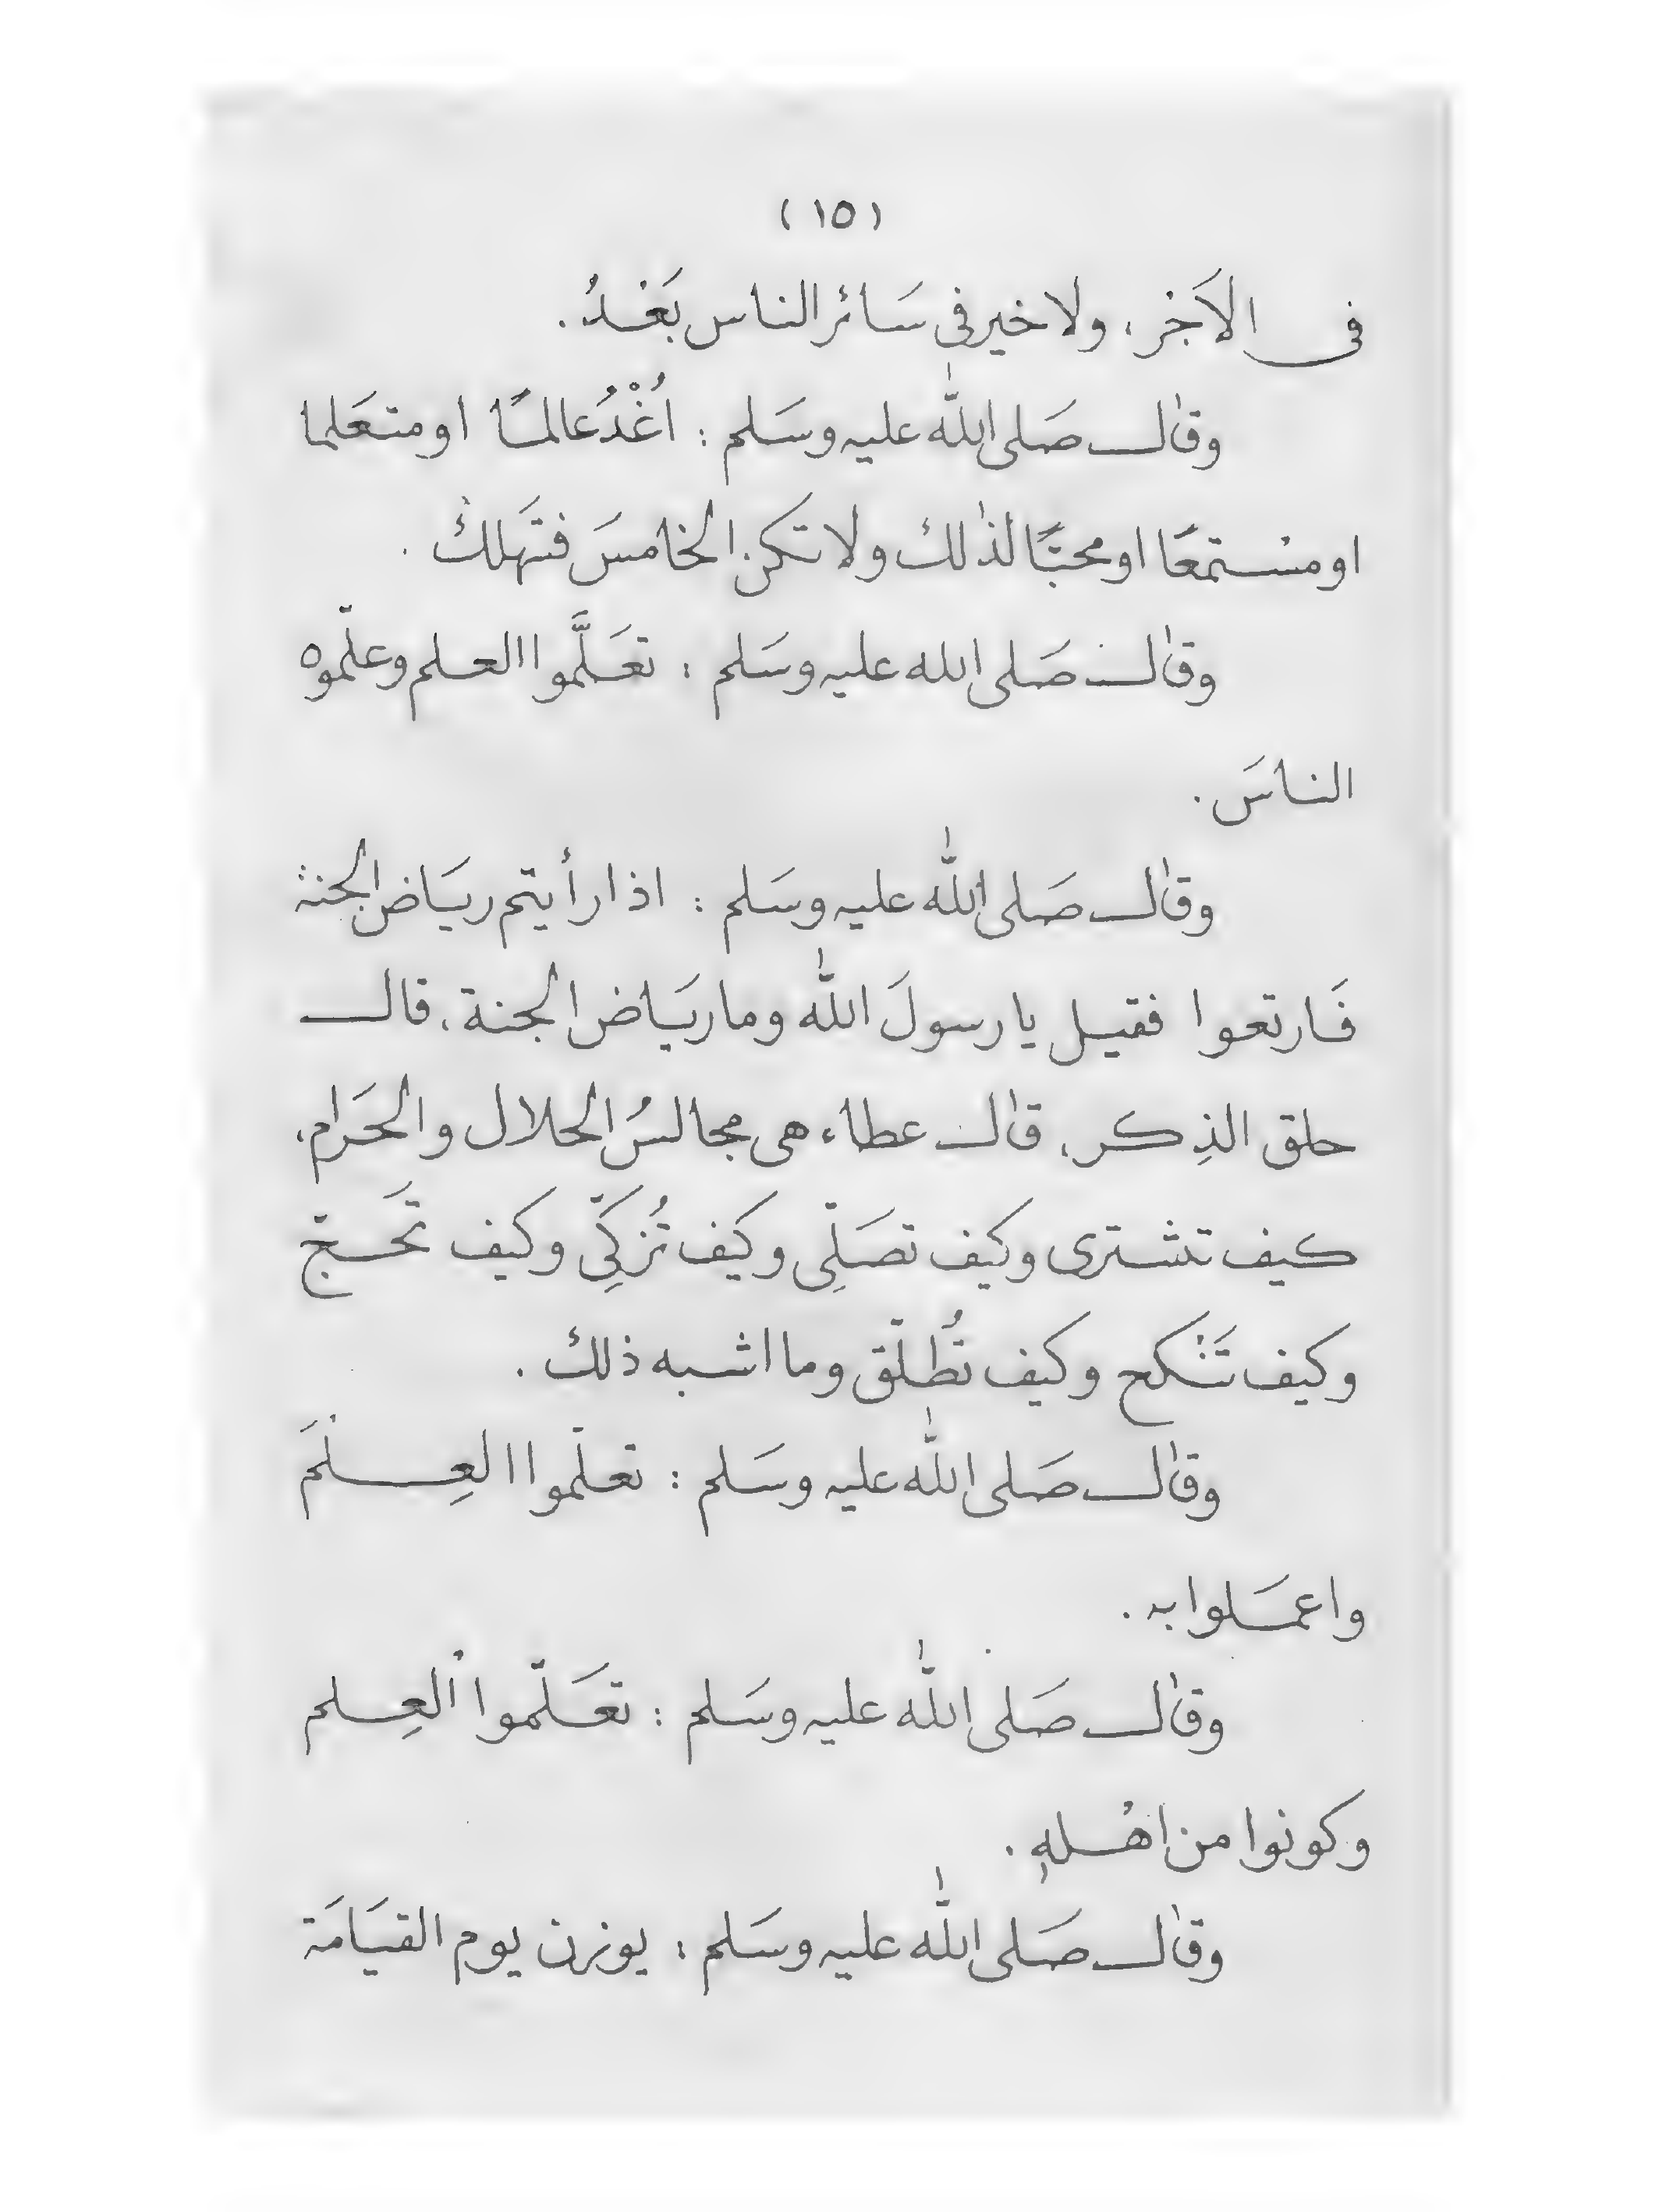 (١٥)
فى الاَجْر، ولا خير فى سَائر الناس بَعْدُ.
وقال صَلى الله عليه وسَلم : اُغْدُ عالمًا او متعَلما
او مسْتمعًا او محبًّا لذٰلك ولا تكن الخامسَ فتَهلكْ .
وقال صَلى الله عليه وسَلم : تعَلَّموا العلم وعلّموه
الناسَ .
وقال صَلى الله عليه وسَلم : اذا رأيتم ريَاض الجنة
فَارتعوا فقيل يا رسولَ الله وما ريَاض الجنة، قال
حلق الذِكر، قال عطاء هى مجالسُ الحلال والحَرام،
كيف تشترى وكيف تصَلِّى وكيف تُزكِّى وكيف تحَجّ
وكيف تَنْكح وكيف تُطلّق وما اشبه ذلك .
وقال صَلى الله عليه وسَلم : تعلّموا العِلْمَ
واعمَلوا به .
وقال صَلى الله عليه وسَلم : تعَلّموا الْعِلم
وكونوا من اهْلهٖ .
وقال صَلى الله عليه وسَلم : يوزن يوم القيَامَة